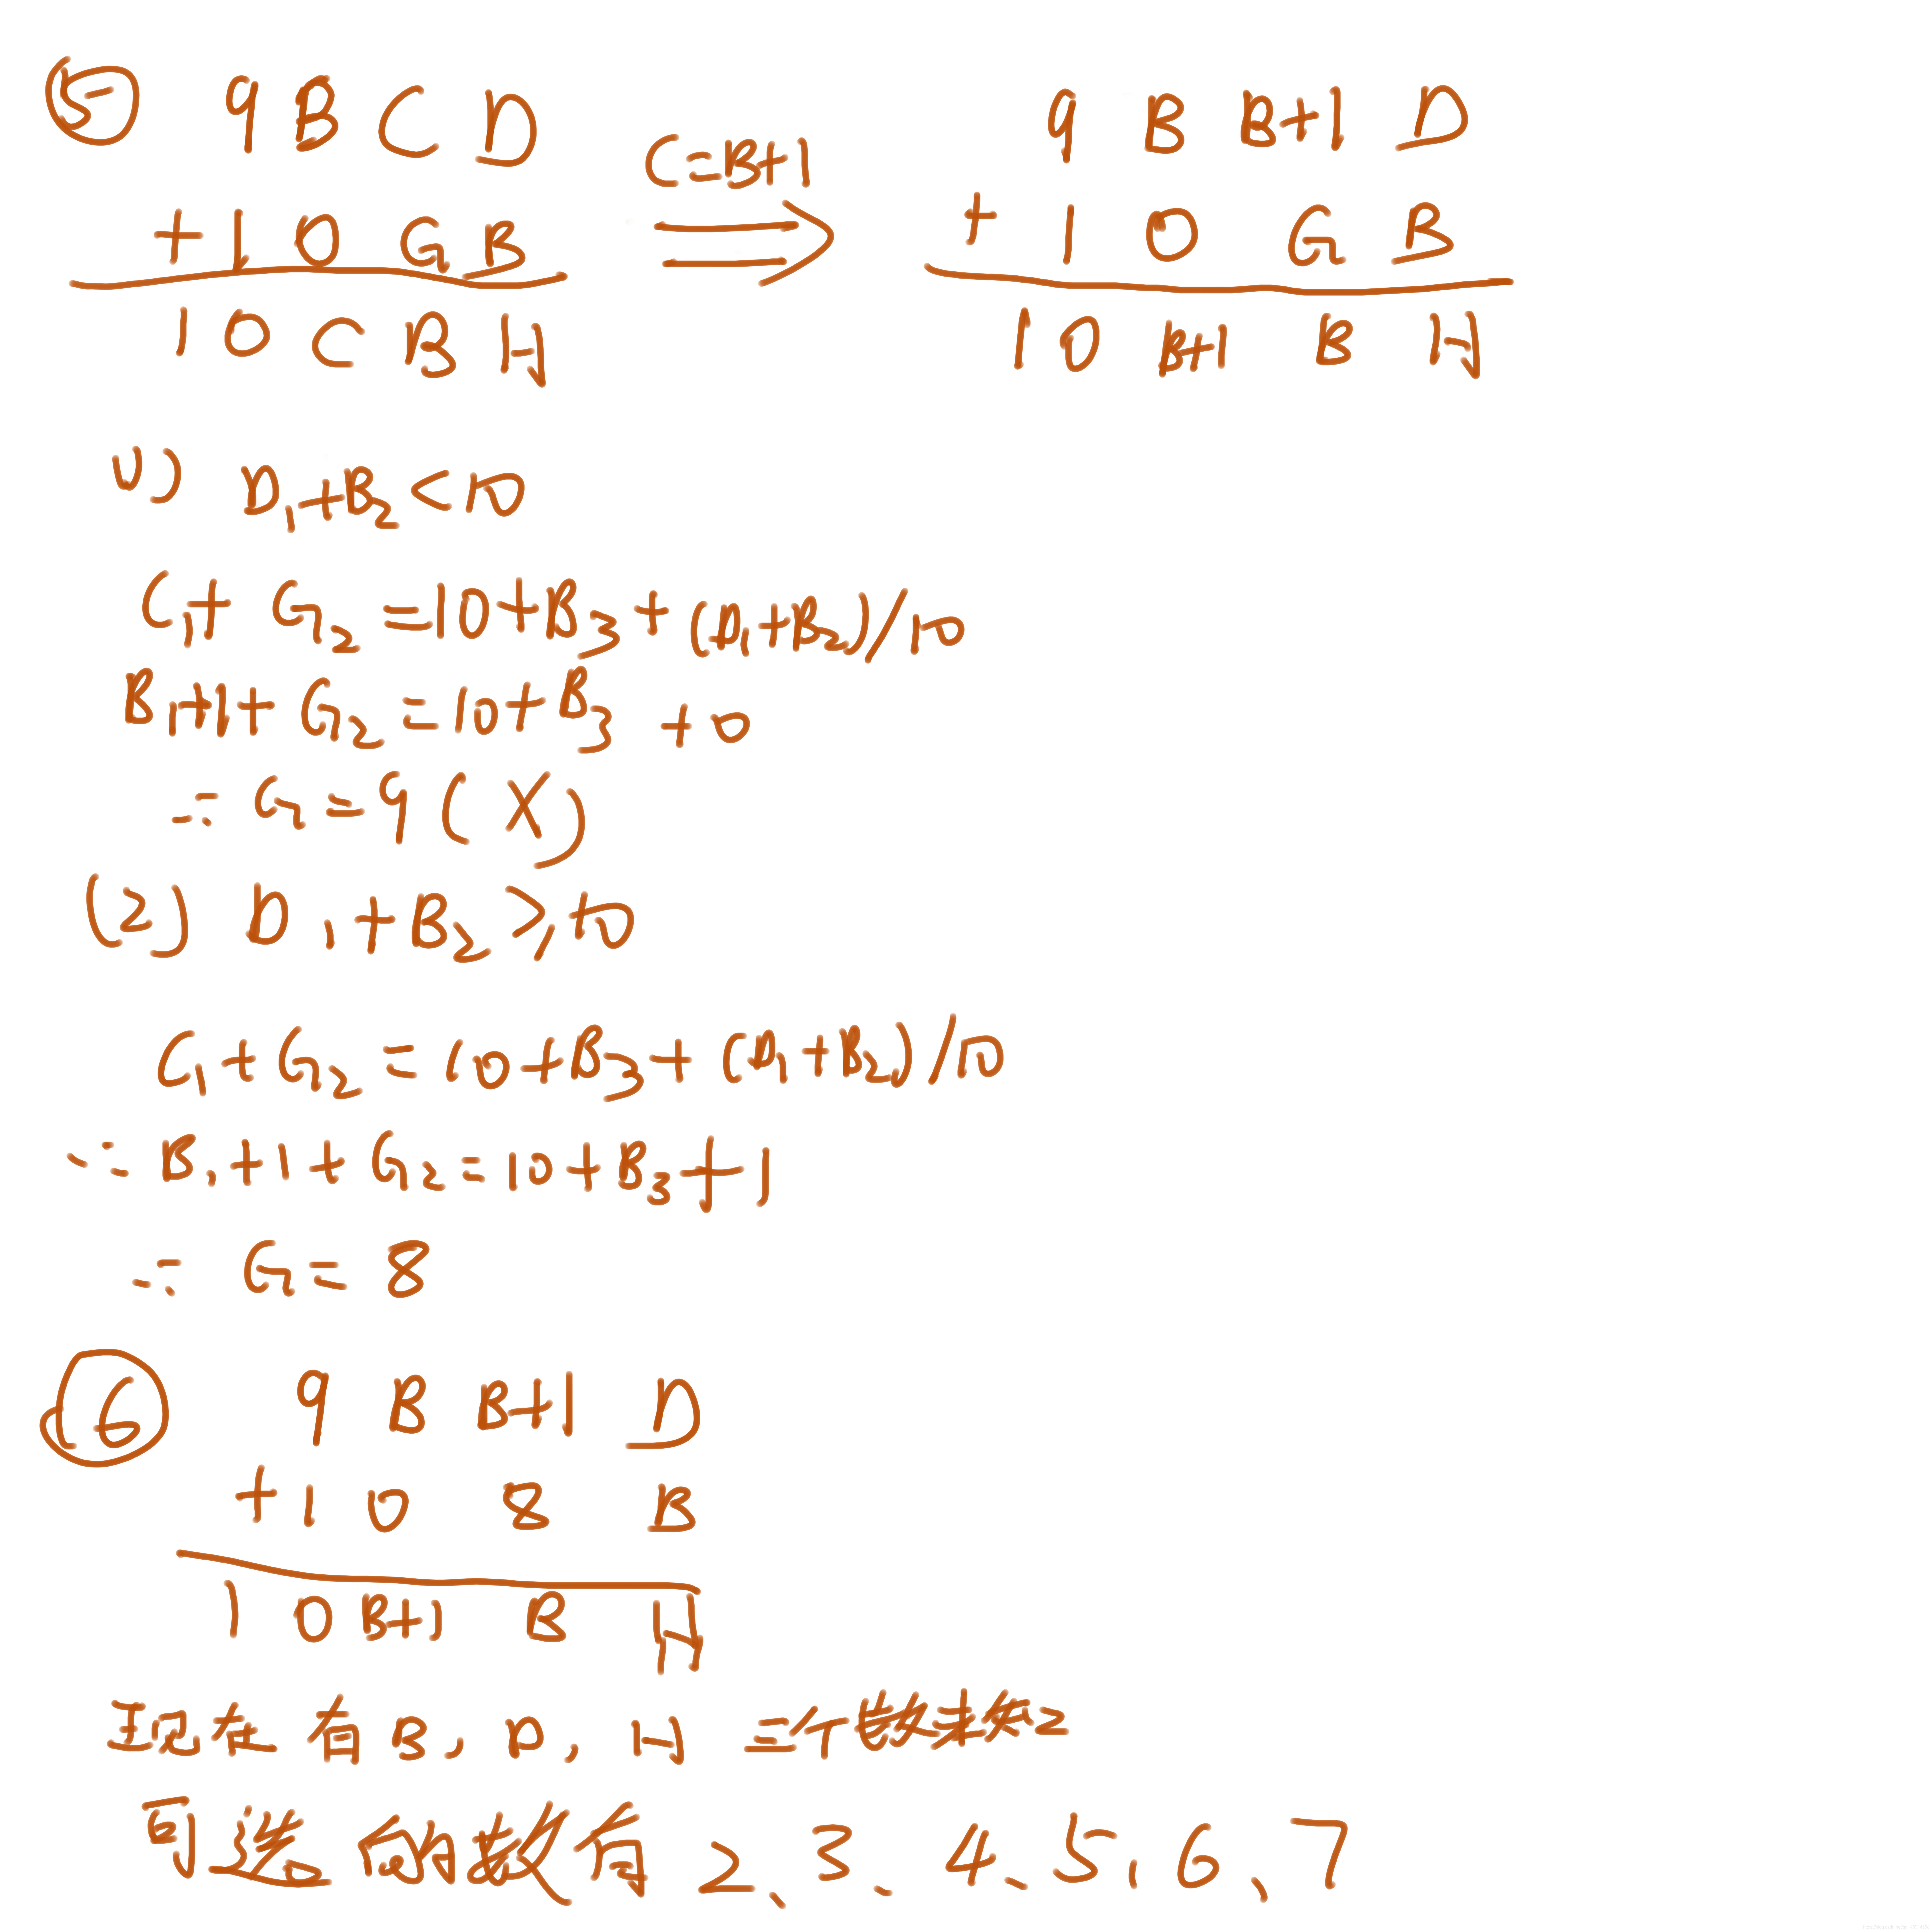 ⑤ 9 B C D
+ 1 0 G B
1 0 C B H
C=B+1
9 B B+1 D
+ 1 0 G B
1 0 B+1 B H
(1) D1+B2<10
C1+G2=10+B3+(D1+B2)/10
B1+1+G2=10+B3+0
∴ G=9(X)
(2) D1+B2≥10
C1+G2=10+B3+(D1+B2)/10
∴ B1+1+G2=10+B3+1
∴ G=8
⑥ 9 B B+1 D
+ 1 0 8 B
1 0 B+1 B H
现在有B,D,H 三个数未知
可选的数有2、3、4、5、6、7